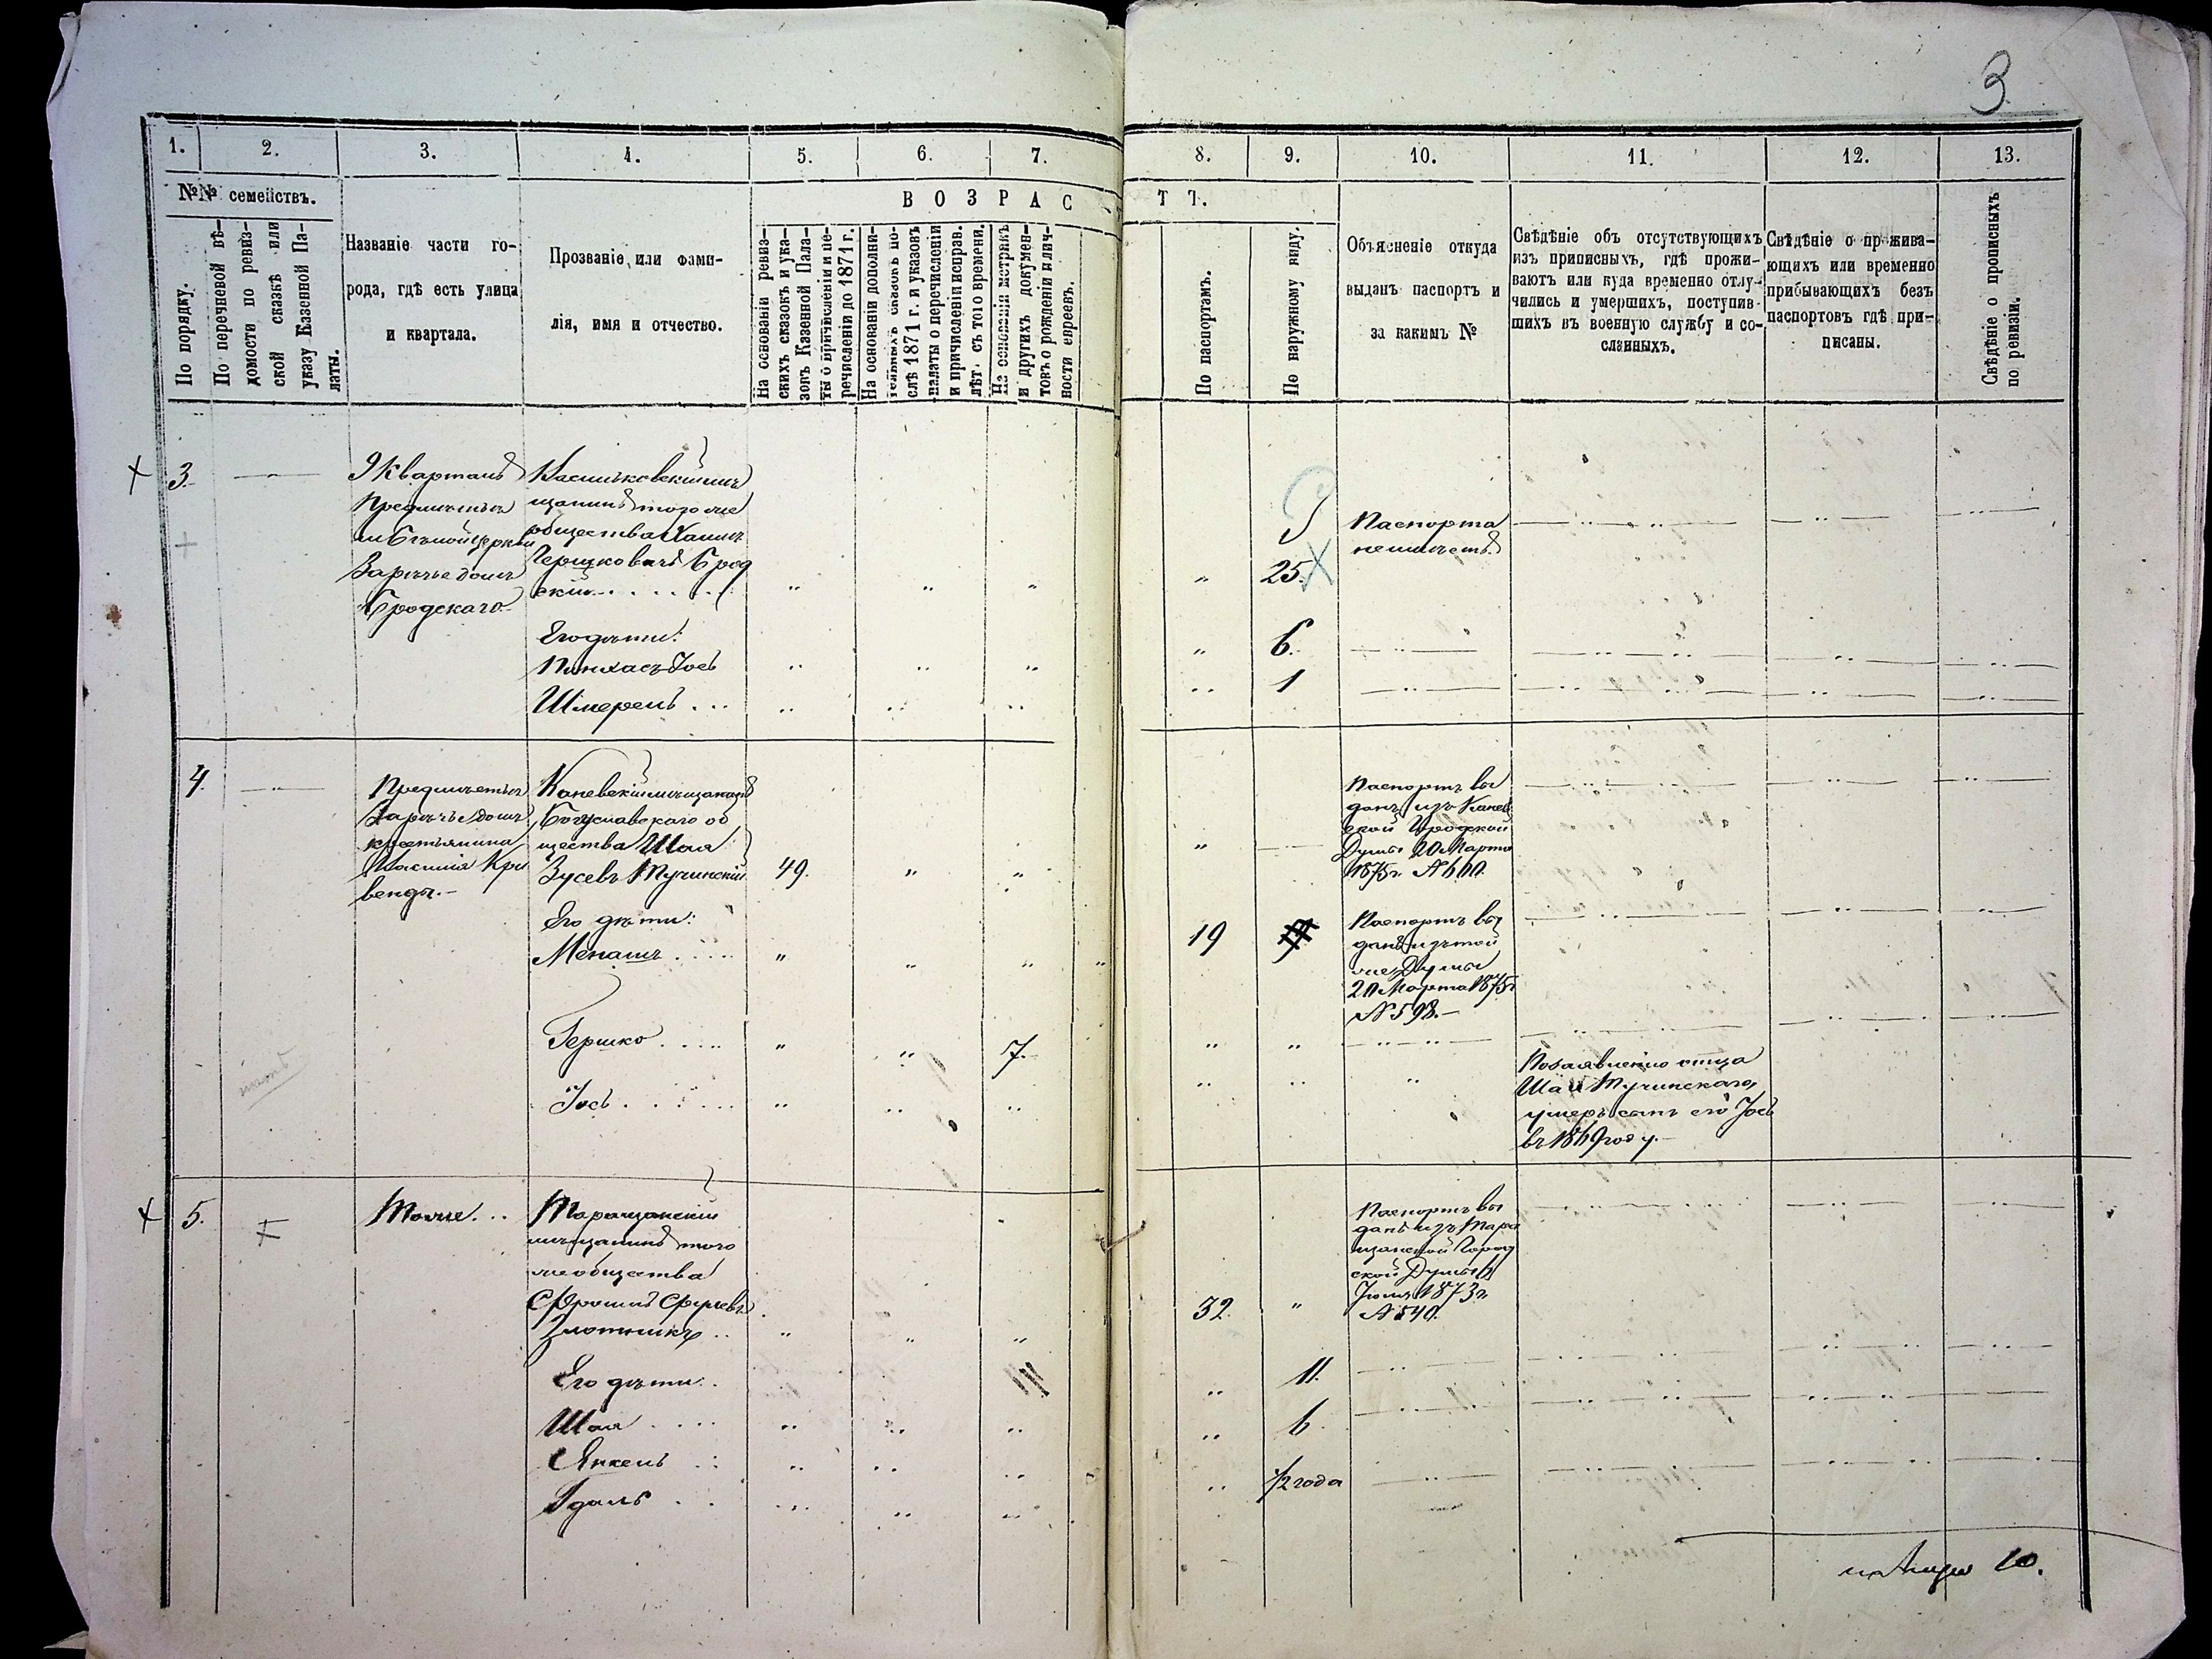 3
1.
2.
3.
4.
5.
6.
7.
8.
9.
10.
11.
12.
13.
№№ семействъ.
По порядку.
По перечневой вѣ-
домости по ревиз-
ской сказкѣ или
указу Казенной Па-
латы.
Названіе части го-
рода, гдѣ есть улица
и квартала.
Прозваніе или фами-
лія, имя и отчество.
ВОЗРАС
ТЪ.
На основаніи ревиз-
скихъ сказокъ и ука-
зовъ Казенной Пала-
ты о причисленіи и пе-
речисленіи до 1871 г.
На основаніи дополни-
тельныхъ сказокъ по-
слѣ 1871 г. и указовъ
палаты о перечисленіи
и причисленіи исправ.
лѣт. съ того времени.
На основаніи метрикъ
и другихъ докумен-
товъ о рожденіи и лич-
ности евреевъ.
По паспортамъ.
По наружному виду.
Объясненіе откуда
выданъ паспортъ и
за какимъ №
Свѣдѣніе объ отсутствующихъ
изъ приписныхъ, гдѣ прожи-
ваютъ или куда временно отлу-
чились и умершихъ, поступив-
шихъ въ военную службу и со-
сланныхъ.
Свѣдѣніе о прожива-
ющихъ или временно
прибывающихъ безъ
паспортовъ гдѣ при-
писаны.
Свѣдѣніе о прописныхъ
по ревизіи.
3.
9 Кварталъ
Предмѣстье
м Бѣлой церкви
Зарѣчье домъ
Бродскаго
Васильковскій мѣ
щанинъ того же
общества Хаимъ
Гершковичъ Брод
скій
25.
Паспорта
неимѣетъ
Его дѣти:
Пинхасъ Іось
6.
Шмерель
1
4.
Предмѣстье
Зарѣчье домъ
крестьянина
Василія Кри
венды.
Каневскій мѣщанинъ
Богуславскаго об
щества Шая
Зусевъ Тучинскій
49.
Паспортъ вы
данъ изъ Канев
ской Городской
Думы 20 Марта
1875 г. № 600
Его дѣти:
Менашъ
19
Паспортъ вы
данъ изъ той
же Думы
20 Марта 1875 г
№ 598.
Гершко
7.
Іось
По заявленію отца
Шаи Тучинскаго,
умеръ сынъ его Іось
въ 1869 году.
5.
Тоже
Таращанскій
мѣщанинъ того
же общества
Злотникъ
32.
Паспортъ вы
данъ изъ Тара
щанской Город
ской Думы
1873 г
№ 540.
Его дѣти
11.
Шая
6
Янкель
1/2 года
Гдаль
10.